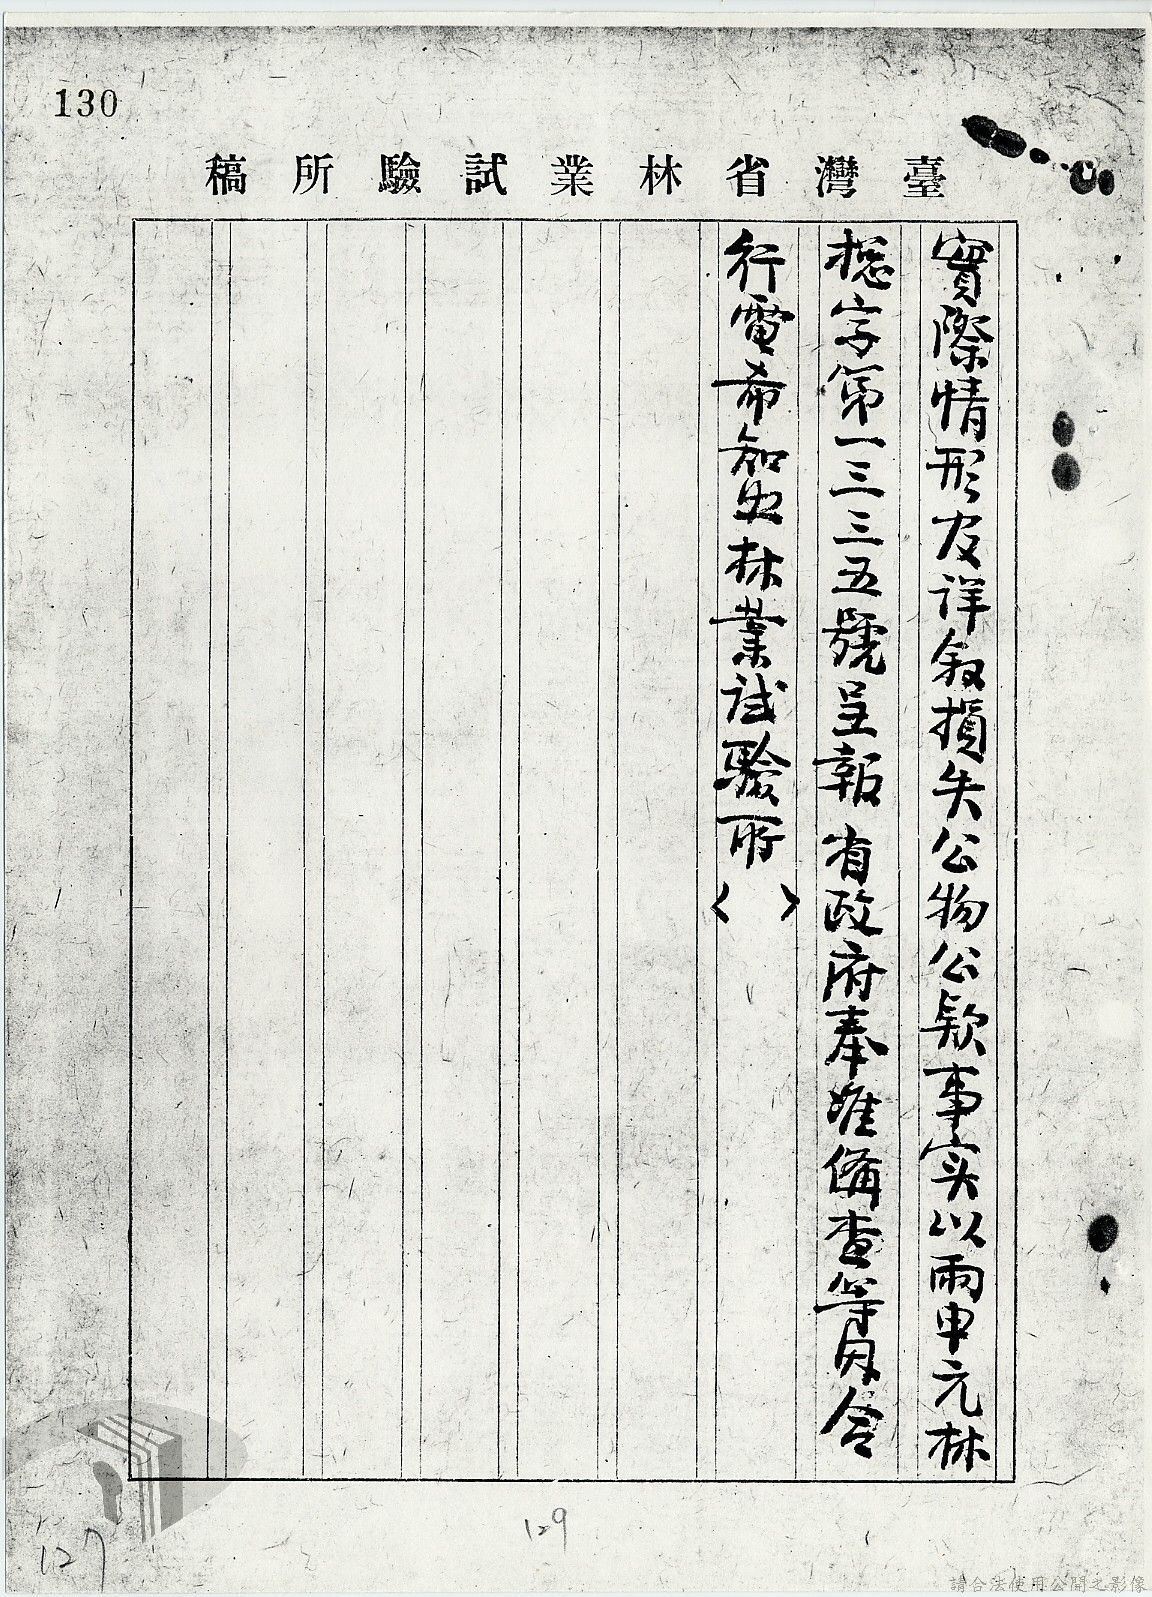 130
臺灣省林業試驗所稿
實際情形及详敘損失公物公款事实以兩申元林
總字第一三三五號呈報 省政府奉准備查等因合
行電希知照林業試驗所〈 〉
129
127
請合法使用公開之影像